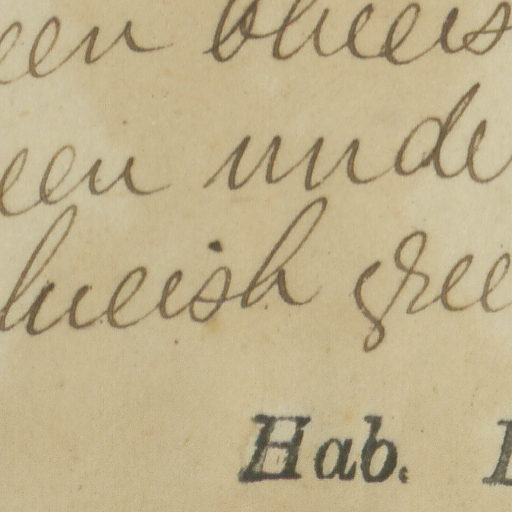 een blueis
een unde
lueish gree
Hab.